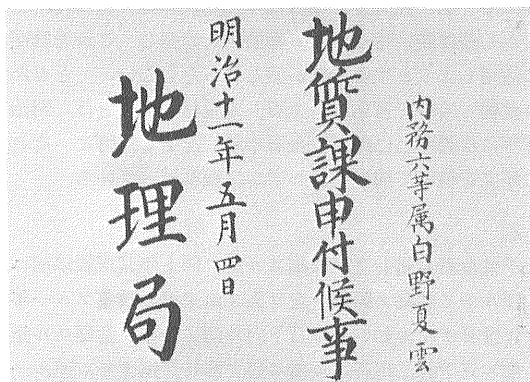 内務六等属白野夏雲
地質課申付候事
明治十一年五月四日
地理局